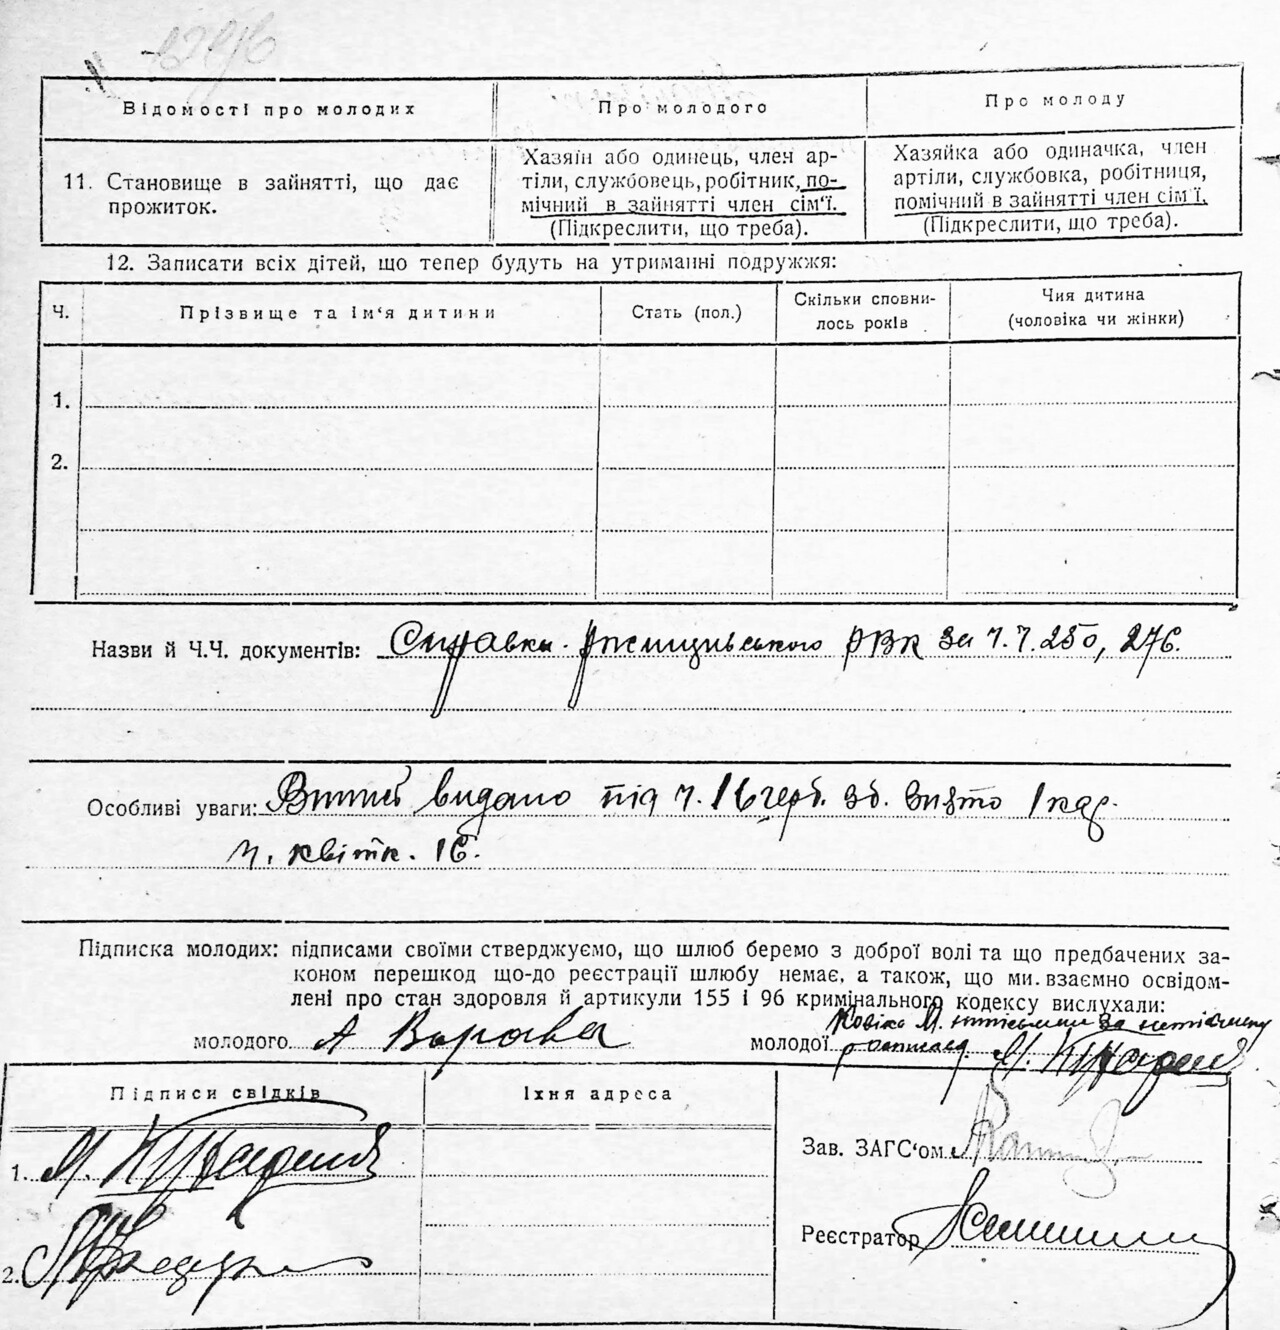 Відомості про молодих
Про молодого
Про молоду
11. Становище в зайнятті, що дає
прожиток.
Хазяїн або одинець, член ар-
тіли, службовець, робітник, по-
мічний в зайнятті член сім'ї.
(Підкреслити, що треба).
Хазяйка або одиначка, член
артіли, службовка, робітниця,
помічний в зайнятті член сім'ї.
(Підкреслити, що треба).
12. Записати всіх дітей, що тепер будуть на утриманні подружжя:
Ч.
Прізвище та ім'я дитини
Стать (пол.)
Скільки сповни-
лось років
Чия дитина
(чоловіка чи жінки)
1.
2.
Назви й Ч.Ч. документів: Справки Ржищівського РВК за ч.ч. 250, 276.
Особливі уваги: Витяг видано під ч. 16 герб. зб. взято 1 кар.
ч. квітк. 16.
Підписка молодих: підписами своїми стверджуємо, що шлюб беремо з доброї волі та що предбачених за-
коном перешкод що-до реєстрації шлюбу немає, а також, що ми взаємно освідом-
лені про стан здоровля й артикули 155 і 96 кримінального кодексу вислухали:
молодого А
молодої М. за
Підписи свідків
Їхня адреса
1. М.
2.
Зав. ЗАГС'ом
Реєстратор